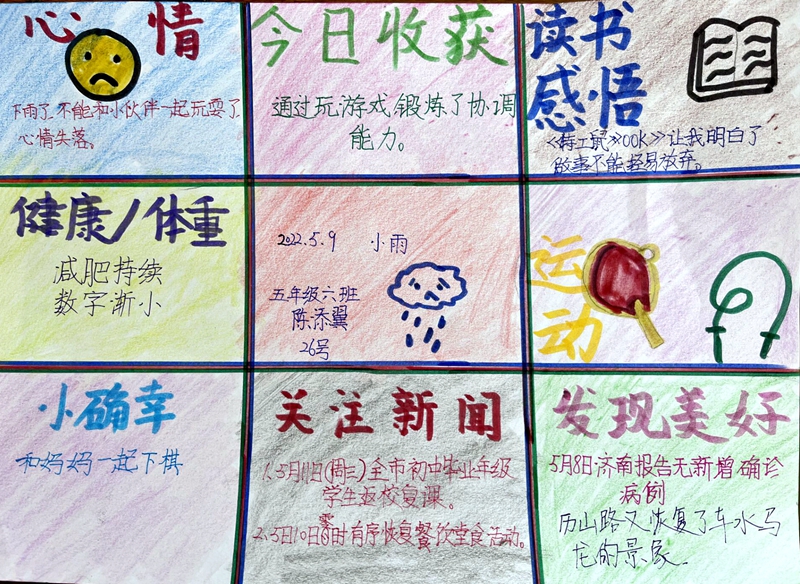 心情
下雨了,不能和小伙伴一起玩耍了
心情失落。
今日收获
通过玩游戏,锻炼了协调
能力。
读书
感悟
《特工鼠》OOK》让我明白了
做事不能轻易放弃。
健康/体重
减肥持续
数字渐小
2022.5.9 小雨
五年级六班
陈添翼
26号
运
动
小确幸
和妈妈一起下棋
关注新闻
1.5月11日(周三)全市初中毕业年级
学生返校复课。
2.5日10日零时有序恢复餐饮堂食活动。
发现美好
5月8日济南报告无新增确诊
病例
历山路又恢复了车水马
龙的景象.